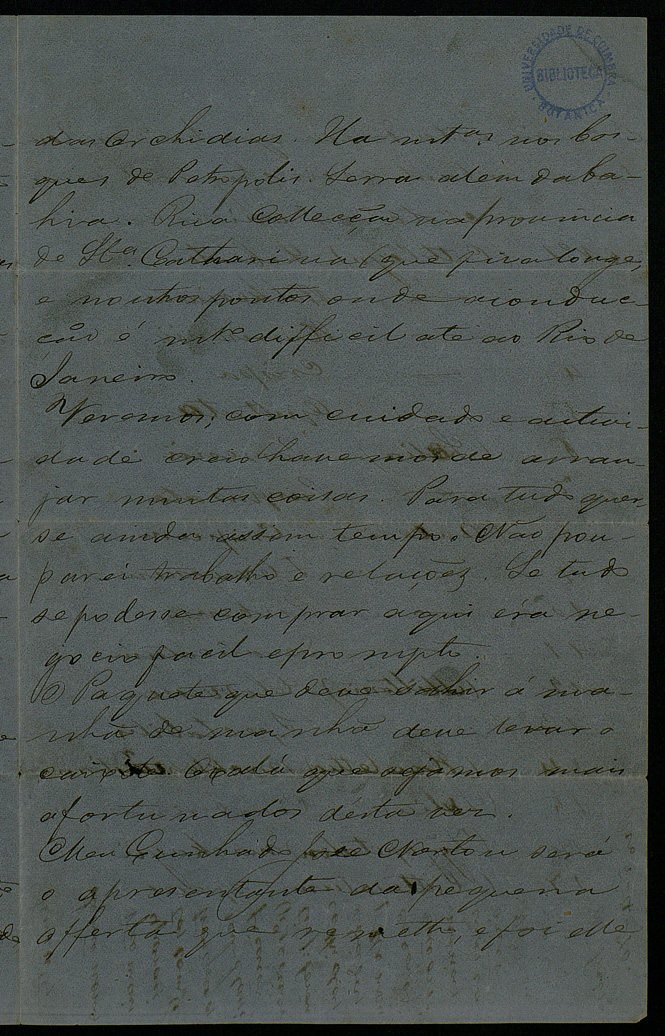 UNIVERSIDADE DE COIMBRA
BIBLIOTECA
BOTANICA
das Orchidias. Ha mtas nos bos-
ques de Petropolis. Serra alem da ba-
hia. Rica Collecção na provincia
de Sta Catharina (que fica longe,
e noutros pontos onde a conduc-
ção é mto difficil até ao Rio de
Janeiro.
Veremos; com cuidado e activi-
dade creio havemos de arran-
jar muitas coisas. Para tudo quer-
se ainda assim tempo. Não pou-
parei trabalho e relações. Se tudo
se podesse comprar aqui éra ne-
gocio facil e prompto.
O Paquete que deve sahir á ma-
nhã de manhã deve levar o
caixote. Oxalá que sejamos mais
afortunados désta vez.
Meu Cunhado José Norton será
o apresentante da pequena
offerta que remetto, e foi elle